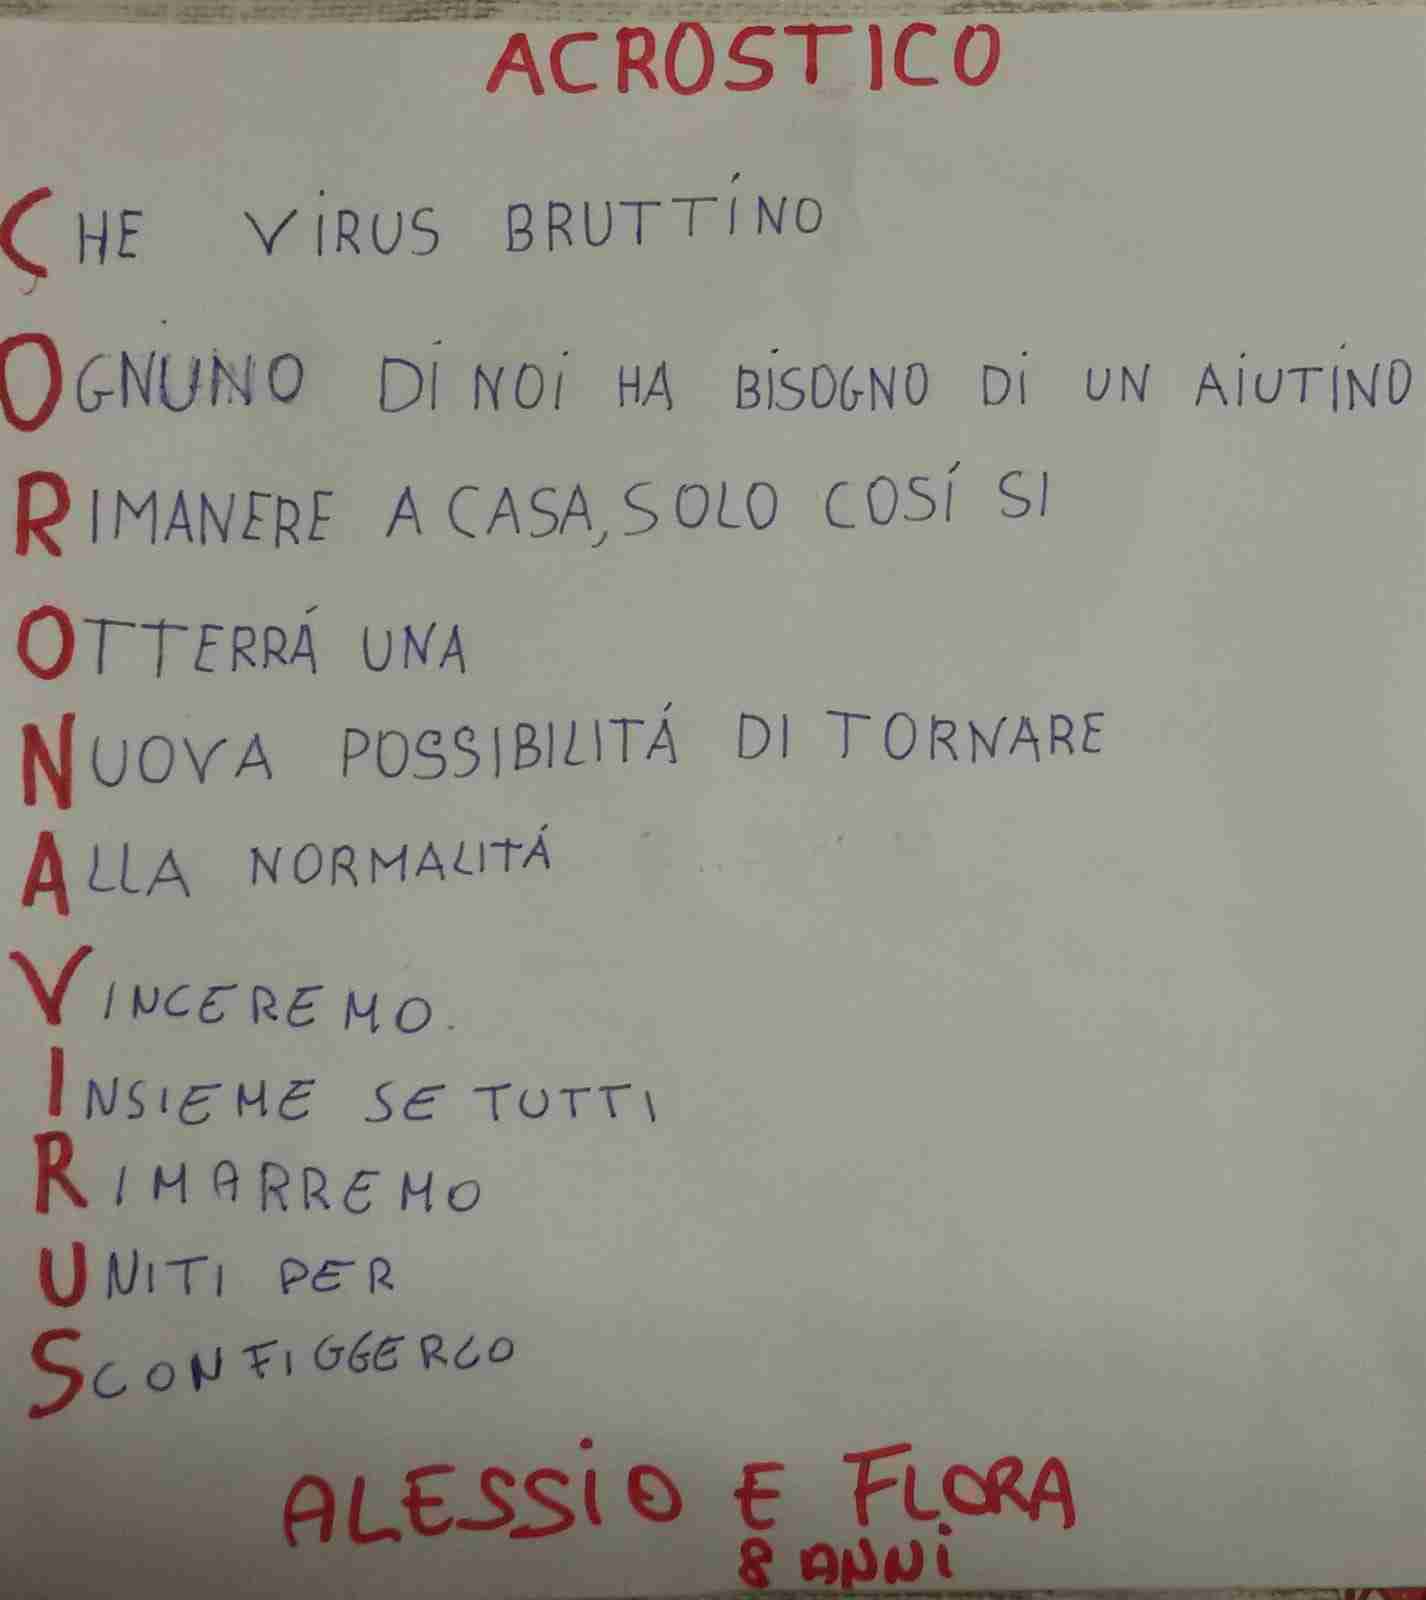 ACROSTICO
CHE VIRUS BRUTTINO
OGNUNO DI NOI HA BISOGNO DI UN AIUTINO
RIMANERE A CASA, SOLO COSÍ SI
OTTERRÁ UNA
NUOVA POSSIBILITÁ DI TORNARE
ALLA NORMALITÁ
VINCEREMO.
INSIEME SE TUTTI
RIMARREMO
UNITI PER
SCONFIGGERLO
ALESSIO E FLORA
8 ANNI